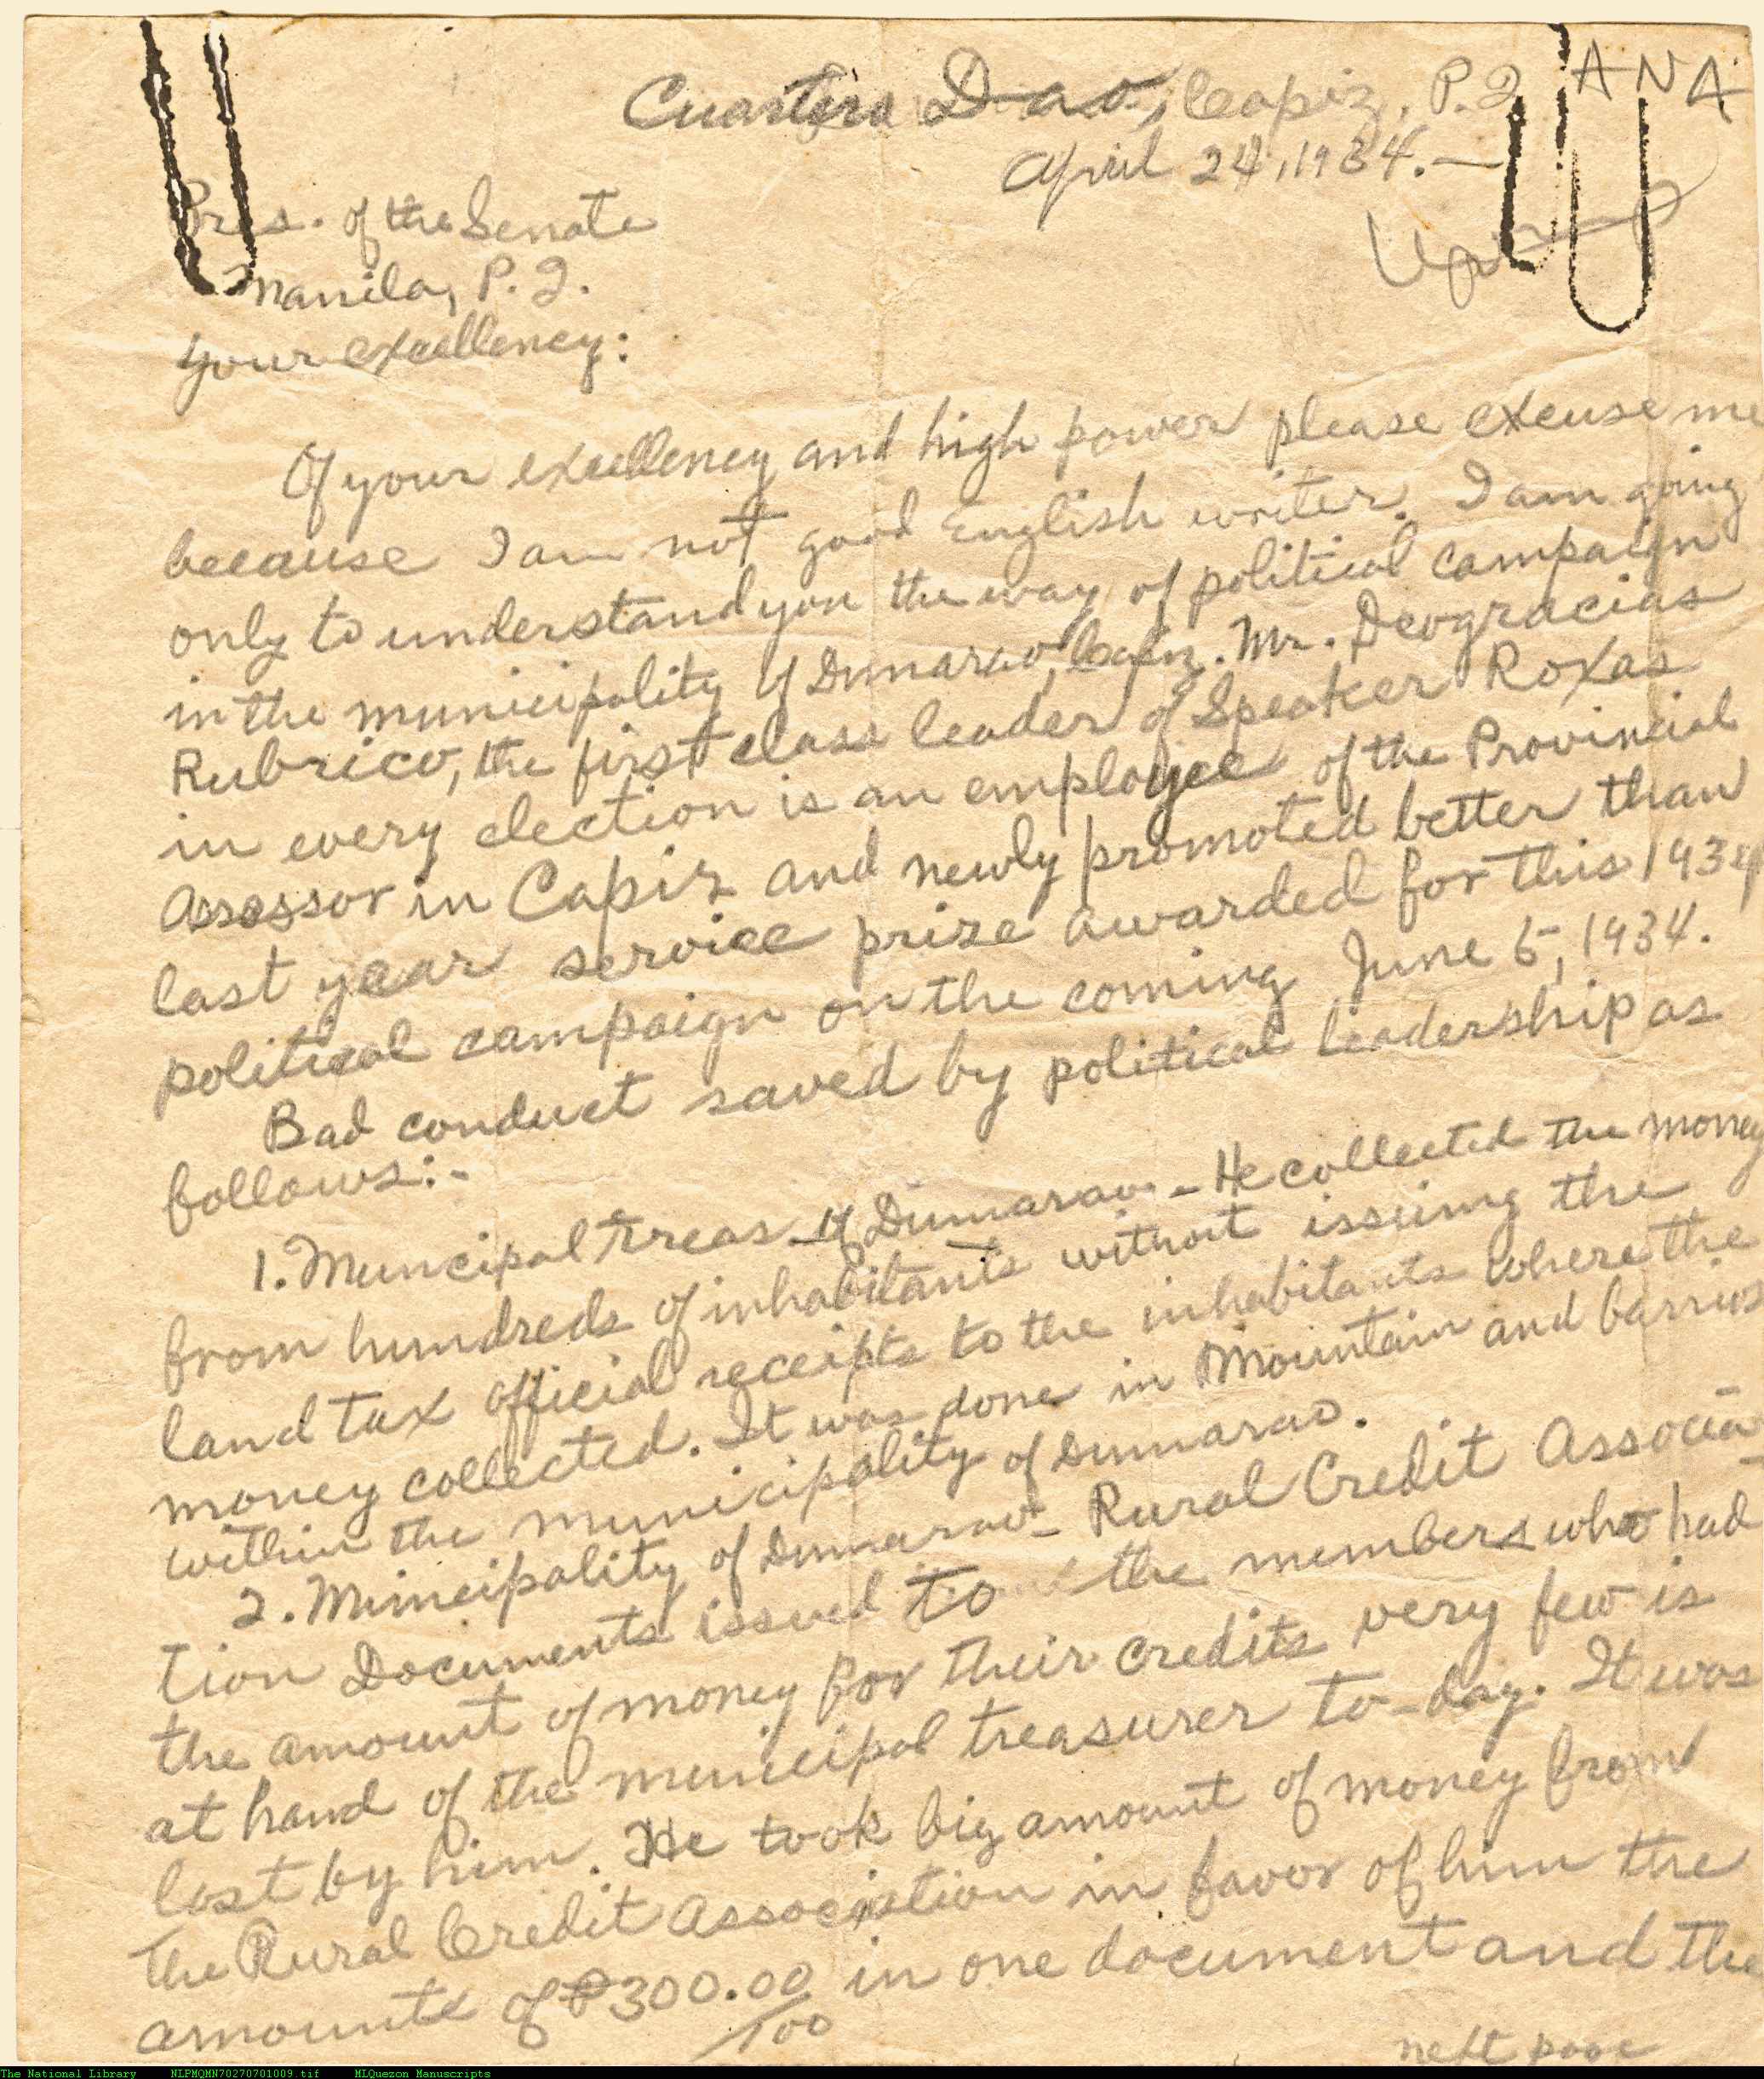 ANA
Cuartero Dao, Capiz, P.I.
April 24, 1934.—
Pres. of the Senate
Manila, P.I.
Your excellency:
Of your excellency and high power please excuse me
because I am not good English writer. I am going
only to understand you the way of political campaign
in the municipality of Dumarao, Capiz. Mr. Deogracias
Rubrico, the first class leader of Speaker Roxas
in every election is an employee of the Provincial
Assessor in Capiz and newly promoted better than
last year service prize awarded for this 1934
political campaign on the coming June 5, 1934.
Bad conduct saved by political leadership as
follows:-
1. Muncipal Treas. of Dumarao - He collected the money
from hundreds of inhabitants without issuing the
land tax official receipts to the inhabitants where the
money collected. It was done in Mountain and barrios
within the municipality of Dumarao.
2. Municipality of Dumarao - Rural Credit Associa-
tion Documents issued to the members who had
the amount of money for their credits very few is
at hand of the municipal treasurer to-day. It was
lost by him. He took big amount of money from
the Rural Credit Association in favor of him the
amounts of ₱300.00/100 in one document and the
next page
The National Library NLPMQMN70270701009.tif MLQuezon Manuscripts